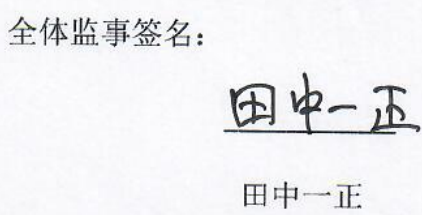 全体监事签名：
田中一正
田中一正